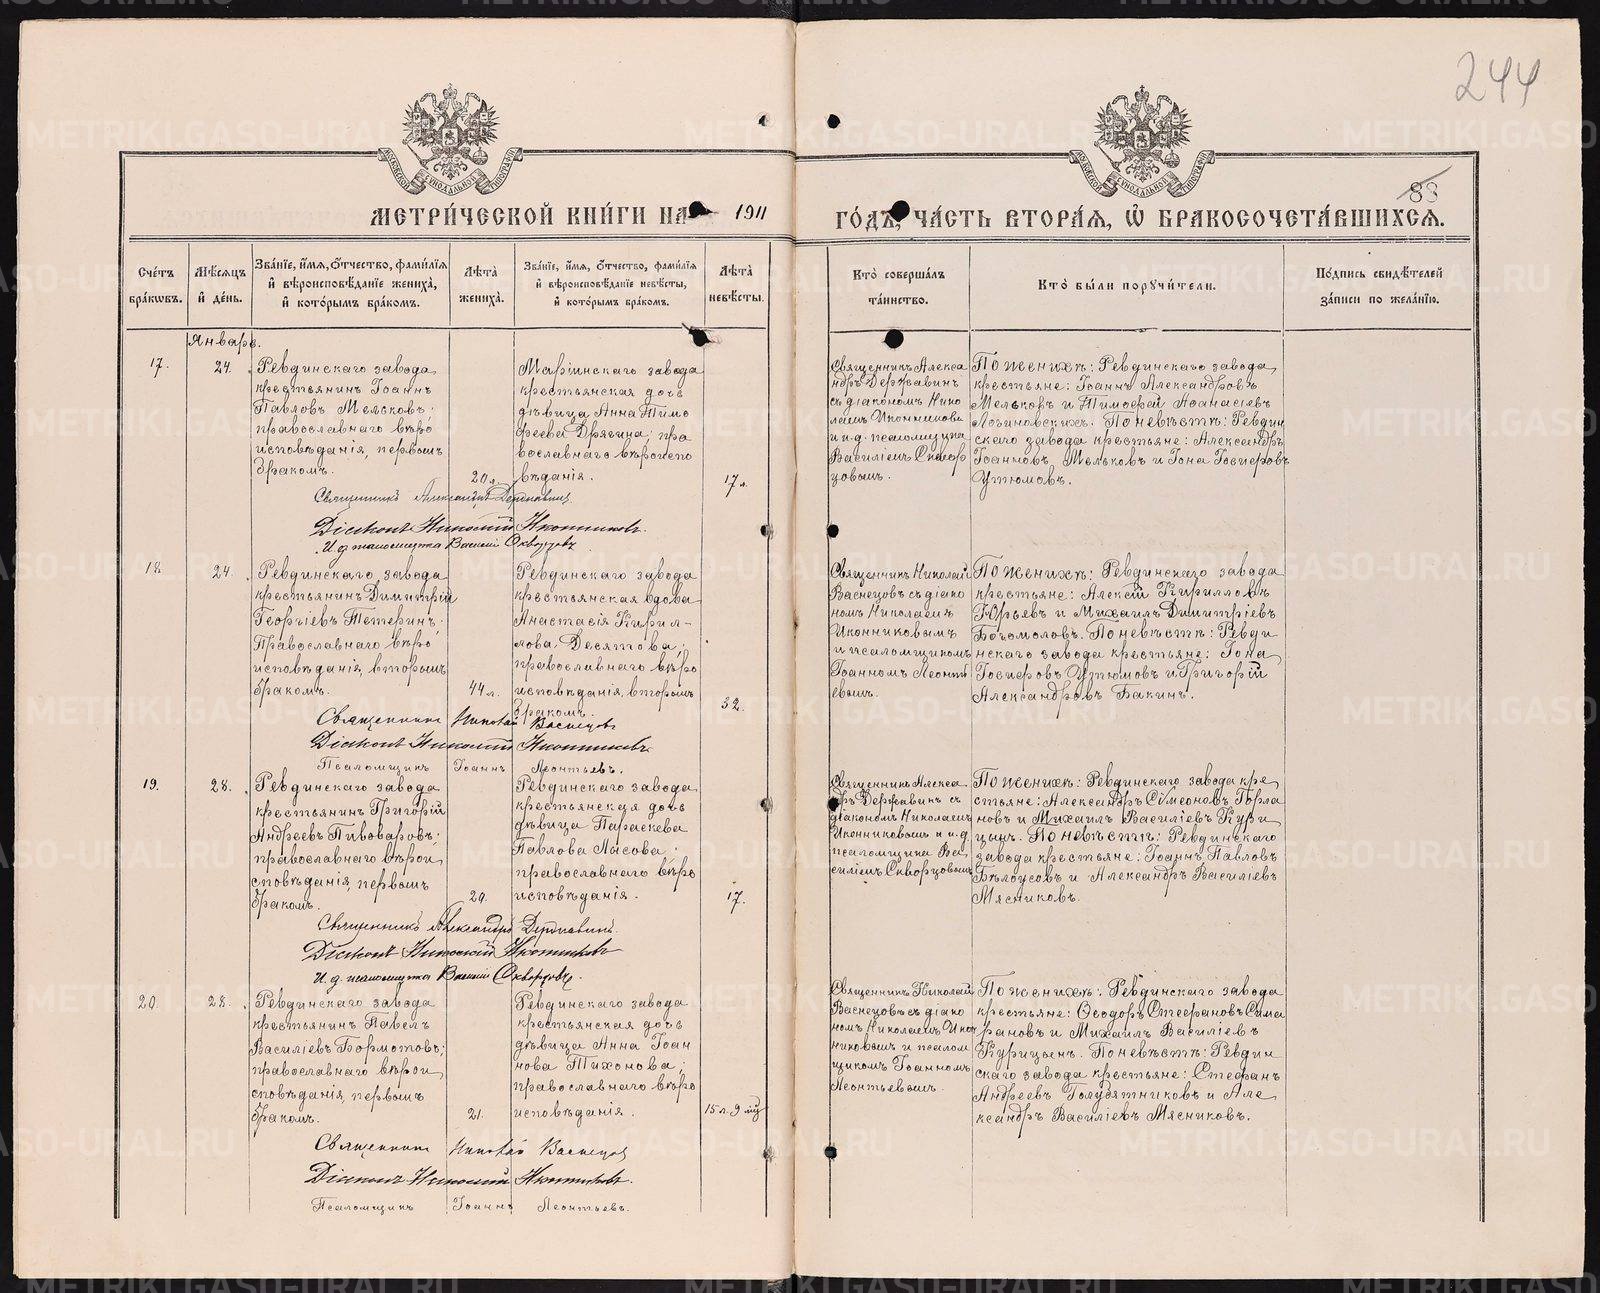 244
83
МЕТРИ́ЧЕСКОЙ КНИ́ГИ НА 1911 ГО́ДЪ, ЧА́СТЬ ВТОРА́Я, Ѽ БРАКОСОЧЕТА́ВШИХСЯ.
Сче́тъ бра́кѡвъ.
Мѣ́сяцъ и҆ де́нь.
Зва́нїе, и҆́мя, ѻ҆́тчество, фами́лїя и҆ вѣроисповѣ́данїе жениха̀, и҆ кото́рымъ бра́комъ.
Лѣ́та жениха̀.
Зва́нїе, и҆́мя, ѻ҆́тчество, фами́лїя и҆ вѣроисповѣ́данїе невѣ́сты, и҆ кото́рымъ бра́комъ.
Лѣ́та невѣ́сты.
Кто̀ соверша́лъ та́инство.
Кто̀ бы́ли порꙋчи́тели.
По́дпись свидѣ́телей за́писи по жела́нїю.
Январь.
17.
24.
Ревдинскаго завода
крестьянинъ Іоаннъ
Павловъ Мельковъ;
православнаго вѣро
исповѣданія, первымъ
бракомъ.
20 л.
Маріинскаго завода
крестьянская дочь
дѣвица Анна Тимо
феева Дрягина; пра
вославнаго вѣроиспо
вѣданія.
17 л.
Священникъ Алекса
ндръ Державинъ
съ діакономъ Нико
лаемъ Иконниковы
и и.д. псаломщика
Василіемъ Сквор
цовымъ.
По женихѣ: Ревдинскаго завода
крестьяне: Іоаннъ Александровъ
Мельковъ и Тимофей Аѳанасіевъ
Логиновскихъ. По невѣстѣ: Ревдин
скаго завода крестьяне: Александръ
Іоанновъ Мельковъ и Іона Іосифовъ
Утюмовъ.
Священникъ Александръ Державинъ
Діаконъ Николай Иконниковъ.
И. д. псаломщика Василій Скворцовъ
18.
24.
Ревдинскаго завода
крестьянинъ Димитрій
Георгіевъ Тетеринъ;
Православнаго вѣро
исповѣданія, вторымъ
бракомъ.
44 л.
Ревдинскаго завода
крестьянская вдова
Анастасія Кирил-
лова Десятова;
православнаго вѣро
исповѣданія, вторымъ
бракомъ.
32.
Священникъ Николай
Васнецовъ съ діако
номъ Николаемъ
Иконниковымъ
и псаломщикомъ
Іоанномъ Леонті
евымъ.
По женихѣ: Ревдинскаго завода
крестьяне: Алексій Кирилловъ
Юрьевъ и Михаилъ Димитріевъ
Богомоловъ. По невѣстѣ: Ревди
нскаго завода крестьяне: Іона
Іосифовъ Утюмовъ и Григорій
Александровъ Бакинъ.
Священникъ Николай Васнецовъ
Діаконъ Николай Иконниковъ
Псаломщикъ Іоаннъ Леонтьевъ.
19.
28.
Ревдинскаго завода
крестьянинъ Григорій
Андреевъ Пивоваровъ;
православнаго вѣрои
сповѣданія, первымъ
бракомъ.
20.
Ревдинскаго завода
крестьянская дочь
дѣвица Параскева
Павлова Лысова;
православнаго вѣро
исповѣданія.
17.
Священникъ Алекса
ндръ Державинъ съ
діакономъ Николаемъ
Иконниковымъ и и.д.
псаломщика Ва
силіемъ Скворцовымъ
По женихѣ: Ревдинскаго завода кре
стьяне: Александръ Симеоновъ Горла
новъ и Михаилъ Василіевъ Кури
цынъ. По невѣстѣ: Ревдинскаго
завода крестьяне: Іоаннъ Павловъ
Бѣлоусовъ и Александръ Василіевъ
Мясниковъ.
Священникъ Александръ Державинъ.
Діаконъ Николай Иконниковъ
И. д. псаломщика Василій Скворцовъ.
20.
28.
Ревдинскаго завода
крестьянинъ Павелъ
Василіевъ Бормотовъ;
православнаго вѣрои
сповѣданія, первымъ
бракомъ.
21.
Ревдинскаго завода
крестьянская дочь
дѣвица Анна Іоан
нова Тихонова;
православнаго вѣро
исповѣданія.
15 л. 9 мц
Священникъ Николай
Васнецовъ съ діако
номъ Николаемъ Икон
никовымъ и псалом
щикомъ Іоанномъ
Леонтьевымъ.
По женихѣ: Ревдинскаго завода
крестьяне: Ѳеодоръ Стефановъ Сима
рановъ и Михаилъ Василіевъ
Курицынъ. По невѣстѣ: Ревдин
скаго завода крестьяне: Стефанъ
Андреевъ Голубятниковъ и Але
ксандръ Василіевъ Мясниковъ.
Священникъ Николай Васнецовъ
Діаконъ Николай Иконниковъ.
Псаломщикъ Іоаннъ Леонтьевъ.
METRIKI.GASO-URAL.RU